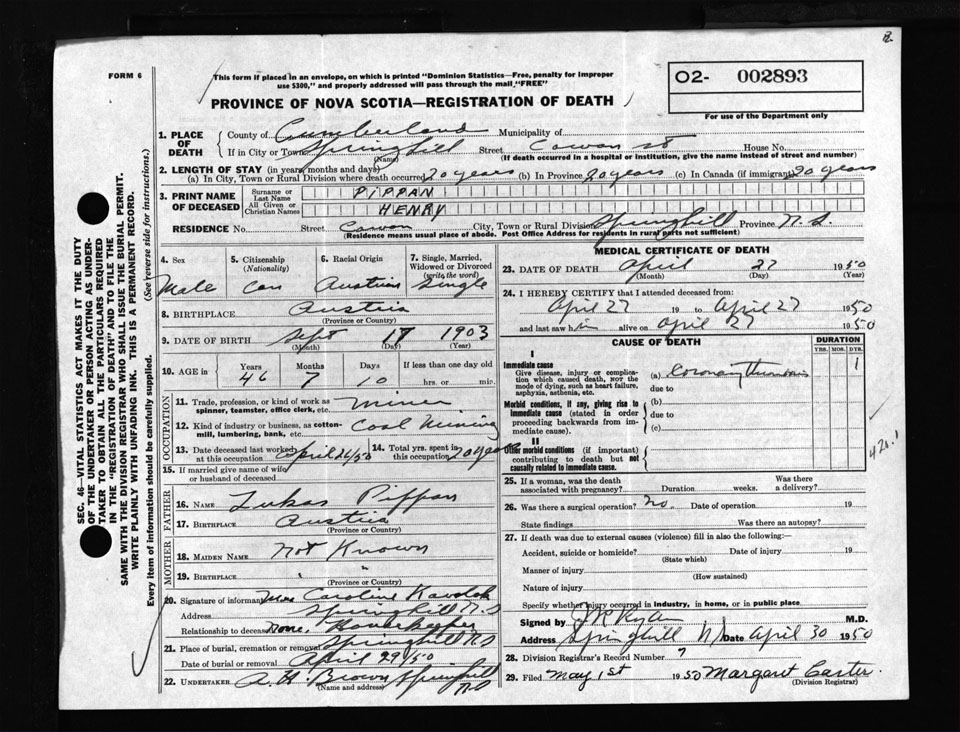 2.
FORM 6
This form if placed in an envelope, on which is printed "Dominion Statistics—Free, penalty for improper
use $300," and properly addressed will pass through the mail "FREE"
PROVINCE OF NOVA SCOTIA—REGISTRATION OF DEATH
02- 002893
For use of the Department only
SEC. 46—VITAL STATISTICS ACT MAKES IT THE DUTY
OF THE UNDERTAKER OR PERSON ACTING AS UNDER-
TAKER TO OBTAIN ALL THE PARTICULARS REQUIRED
IN THE "REGISTRATION OF DEATH" AND TO FILE THE
SAME WITH THE DIVISION REGISTRAR WHO SHALL ISSUE THE BURIAL PERMIT.
WRITE PLAINLY WITH UNFADING INK. THIS IS A PERMANENT RECORD.
Every item of information should be carefully supplied. (See reverse side for instructions.)
1. PLACE OF DEATH
County of Cumberland Municipality of
If in City or Town Springhill Street Cowan St House No.
(Name) (If death occurred in a hospital or institution, give the name instead of street and number)
2. LENGTH OF STAY (in years, months and days)
(a) In City, Town or Rural Division where death occurred 20 years (b) In Province 20 years (c) In Canada (if immigrant) 20 years
3. PRINT NAME OF DECEASED
Surname or Last Name PIPPAN
All Given or Christian Names HENRY
RESIDENCE No. Street Cowan City, Town or Rural Division Springhill Province N.S.
(Residence means usual place of abode. Post Office Address for residents in rural parts not sufficient)
4. Sex Male
5. Citizenship (Nationality) Can
6. Racial Origin Austrian
7. Single, Married, Widowed or Divorced (write the word) Single
8. BIRTHPLACE Austria
(Province or Country)
9. DATE OF BIRTH Sept 17 1903
(Month) (Day) (Year)
10. AGE in Years 46 Months 7 Days 10 If less than one day old hrs. or min.
OCCUPATION
11. Trade, profession, or kind of work as spinner, teamster, office clerk, etc. Miner
12. Kind of industry or business, as cotton-mill, lumbering, bank, etc. Coal Mining
13. Date deceased last worked at this occupation April 26/50
14. Total yrs. spent in this occupation 20 years
15. If married give name of wife or husband of deceased
FATHER
16. Name Lukas Pippan
17. Birthplace Austria
(Province or Country)
MOTHER
18. MAIDEN NAME Not Known
19. BIRTHPLACE " "
(Province or Country)
20. Signature of informant Mrs Caroline
Address Springhill N.S
Relationship to deceased None. Housekeeper
21. Place of burial, cremation or removal Springhill N.S
Date of burial or removal April 29/50
22. UNDERTAKER A. H. Brown Springhill N.S
(Name and address)
MEDICAL CERTIFICATE OF DEATH
23. DATE OF DEATH April 27 1950
(Month) (Day) (Year)
24. I HEREBY CERTIFY that I attended deceased from:
April 27 19 to April 27 1950
and last saw him alive on April 27 1950
CAUSE OF DEATH
DURATION
YRS. MOS. DYS.
I
Immediate cause
Give disease, injury or complication which caused death, NOT the mode of dying, such as heart failure, asphyxia, asthenia, etc.
(a) Coronary Thrombosis 1
due to
Morbid conditions, if any, giving rise to immediate cause (stated in order proceeding backwards from immediate cause).
(b)
due to
(c)
II
Other morbid conditions (if important) contributing to death but not causally related to immediate cause.
420.1
25. If a woman, was the death associated with pregnancy? Duration weeks. Was there a delivery?
26. Was there a surgical operation? No. Date of operation 19
State findings Was there an autopsy?
27. If death was due to external causes (violence) fill in also the following:
Accident, suicide or homicide? Date of injury 19
(State which)
Manner of injury
(How sustained)
Nature of injury
Specify whether injury occurred in industry, in home, or in public place
Signed by M.D.
Address Springhill N.S Date April 30 1950
28. Division Registrar's Record Number 7
29. Filed May 1st 1950 Margaret Carter.
(Division Registrar)